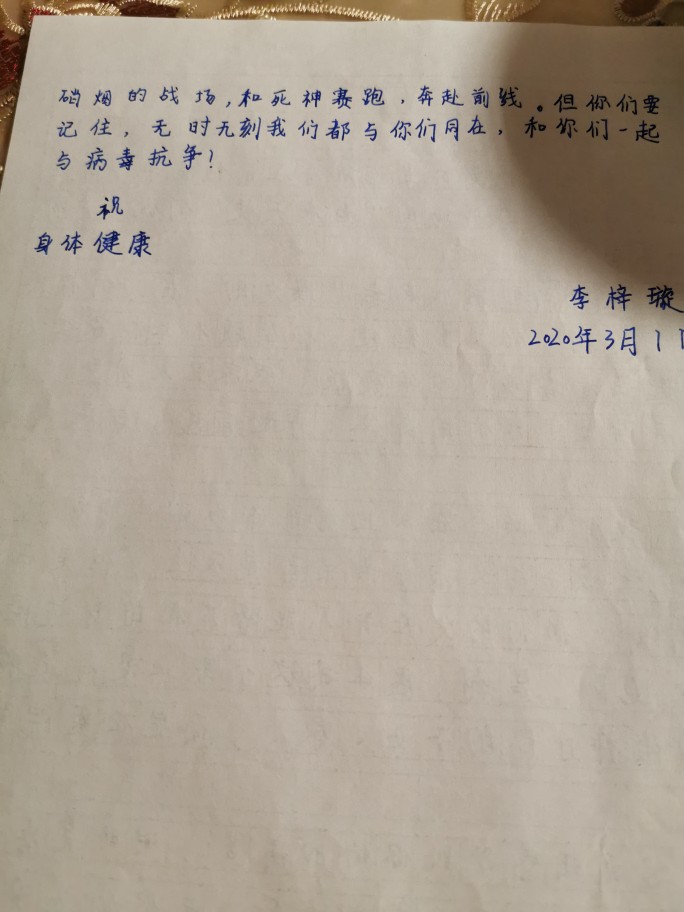 硝烟的战场,和死神赛跑,奔赴前线。但你们要
记住,无时无刻我们都与你们同在,和你们一起
与病毒抗争!
祝
身体健康
李梓璇
2020年3月11